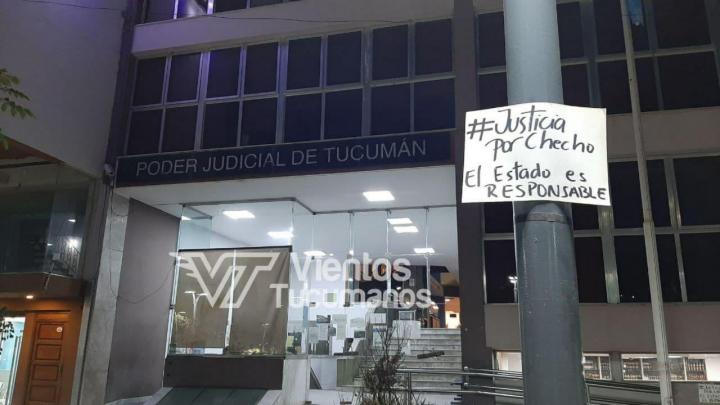 PODER JUDICIAL DE TUCUMÁN
#Justicia
por Checho
El Estado es
RESPONSABLE
VT Vientos
Tucumanos